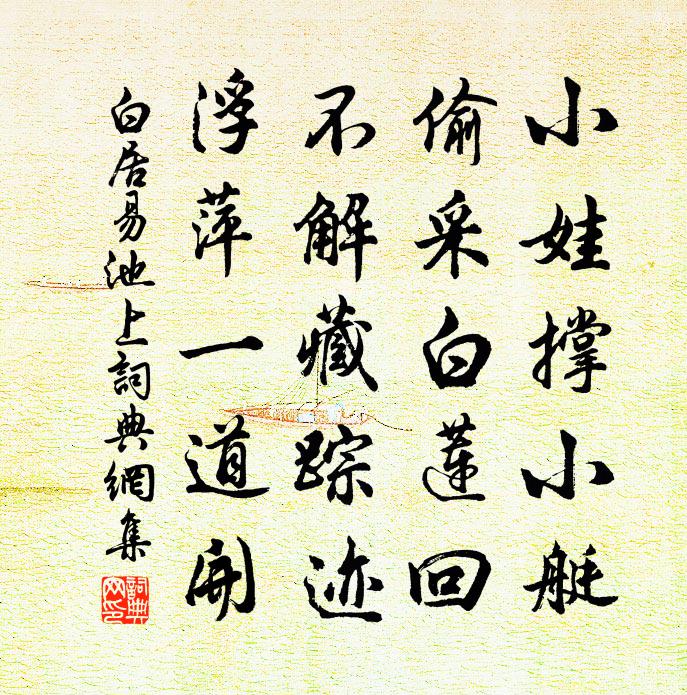 小娃撐小艇
偷采白蓮回
不解藏踪迹
浮萍一道開
白居易池上詞典網集
詞典网印